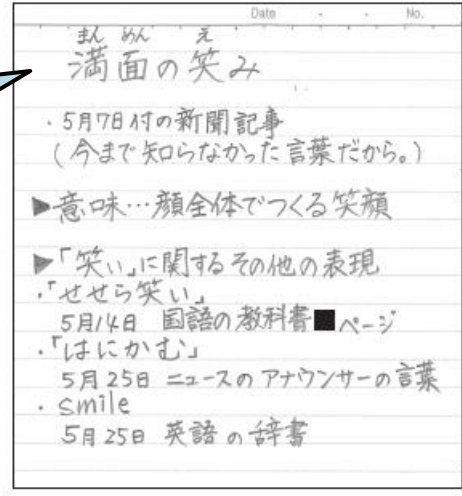 Date ・ ・ No.
まん めん え
満面の笑み
・5月7日付の新聞記事
(今まで知らなかった言葉だから。)
▶意味…顔全体でつくる笑顔
▶「笑い」に関するその他の表現
・「せせら笑い」
5月14日 国語の教科書■ページ
・「はにかむ」
5月25日 ニュースのアナウンサーの言葉
・smile
5月25日 英語の辞書